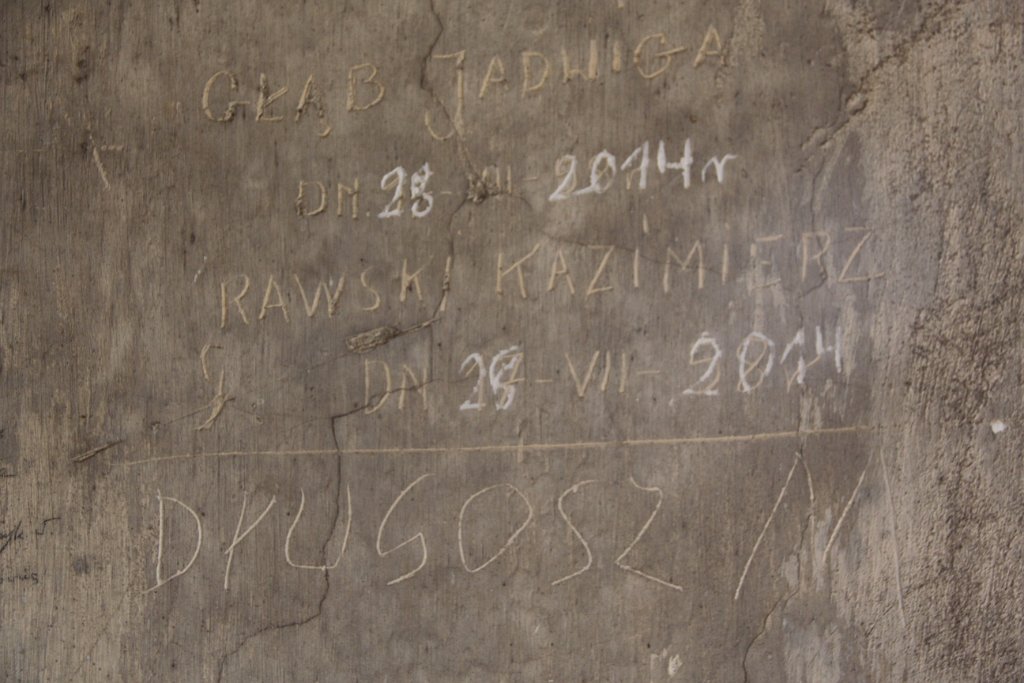 GŁĄB JADWIGA
DN. 28-VII-2014r
RAWSKI KAZIMIERZ
DN 28-VII-2014
DŁUGOSZ M